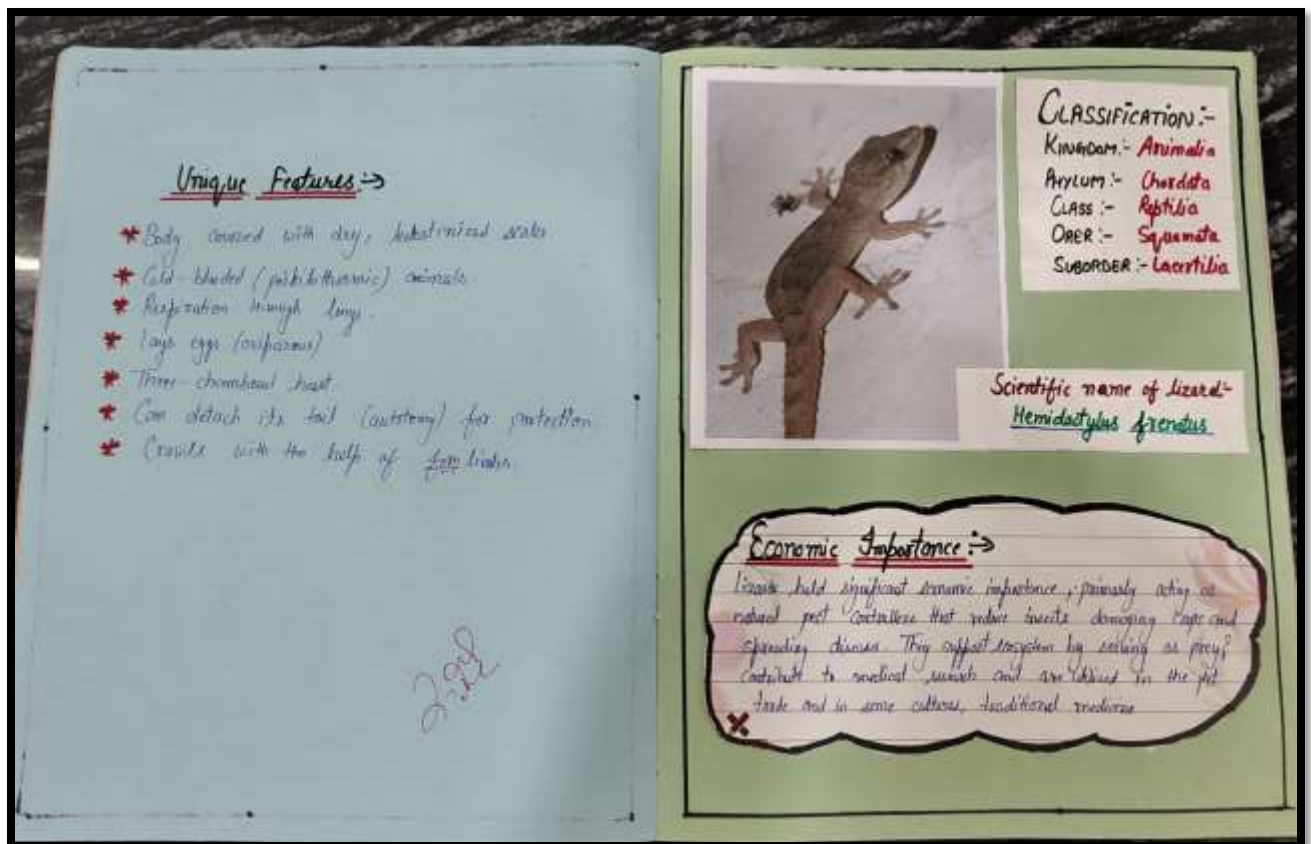 Unique Features:→
* Body covered with dry, keratinized scales
* Cold-blooded (poikilothermic) animals.
* Respiration through lungs.
* Lays eggs (oviparous)
* Three chambered heart.
* Can detach its tail (autotomy) for protection.
* Crawls with the help of four limbs.
CLASSIFICATION:-
KINGDOM:- Animalia
PHYLUM:- Chordata
CLASS:- Reptilia
ORER:- Squamata
SUBORDER:- Lacertilia
Scientific name of lizard:-
Hemidactylus frenatus
Economic Importance:→
Lizards hold significant economic importance, primarily acting as
natural pest controllers that reduce insects damaging crops and
spreading disease. They support ecosystem by serving as prey,
contribute to medical research and are utilised in the pet
trade and in some cultures, traditional medicine